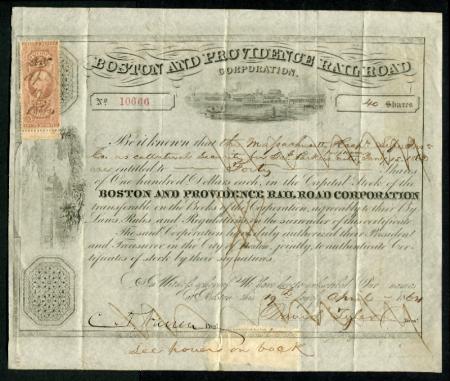 BOSTON AND PROVIDENCE RAIL ROAD
CORPORATION.
No. 10666
40 Shares
Be it known that the Massachusetts Hosp. Life Ins.
Co. as collateral security for
are entitled to Forty Shares
of One Hundred Dollars each, in the Capital Stock of the
BOSTON AND PROVIDENCE RAIL ROAD CORPORATION
transferable on the Books of the Corporation, agreeably to their By
Laws, Rules and Regulations, on the surrender of this certificate.
The said Corporation by duly authorised their President
and Treasurer in the City of Boston, jointly, to authenticate Cer-
tificates of stock by their signatures.
In Witness whereof We have hereunto subscribed Our names
at Boston this 19th day of April 1864
David Tyler
see power on back